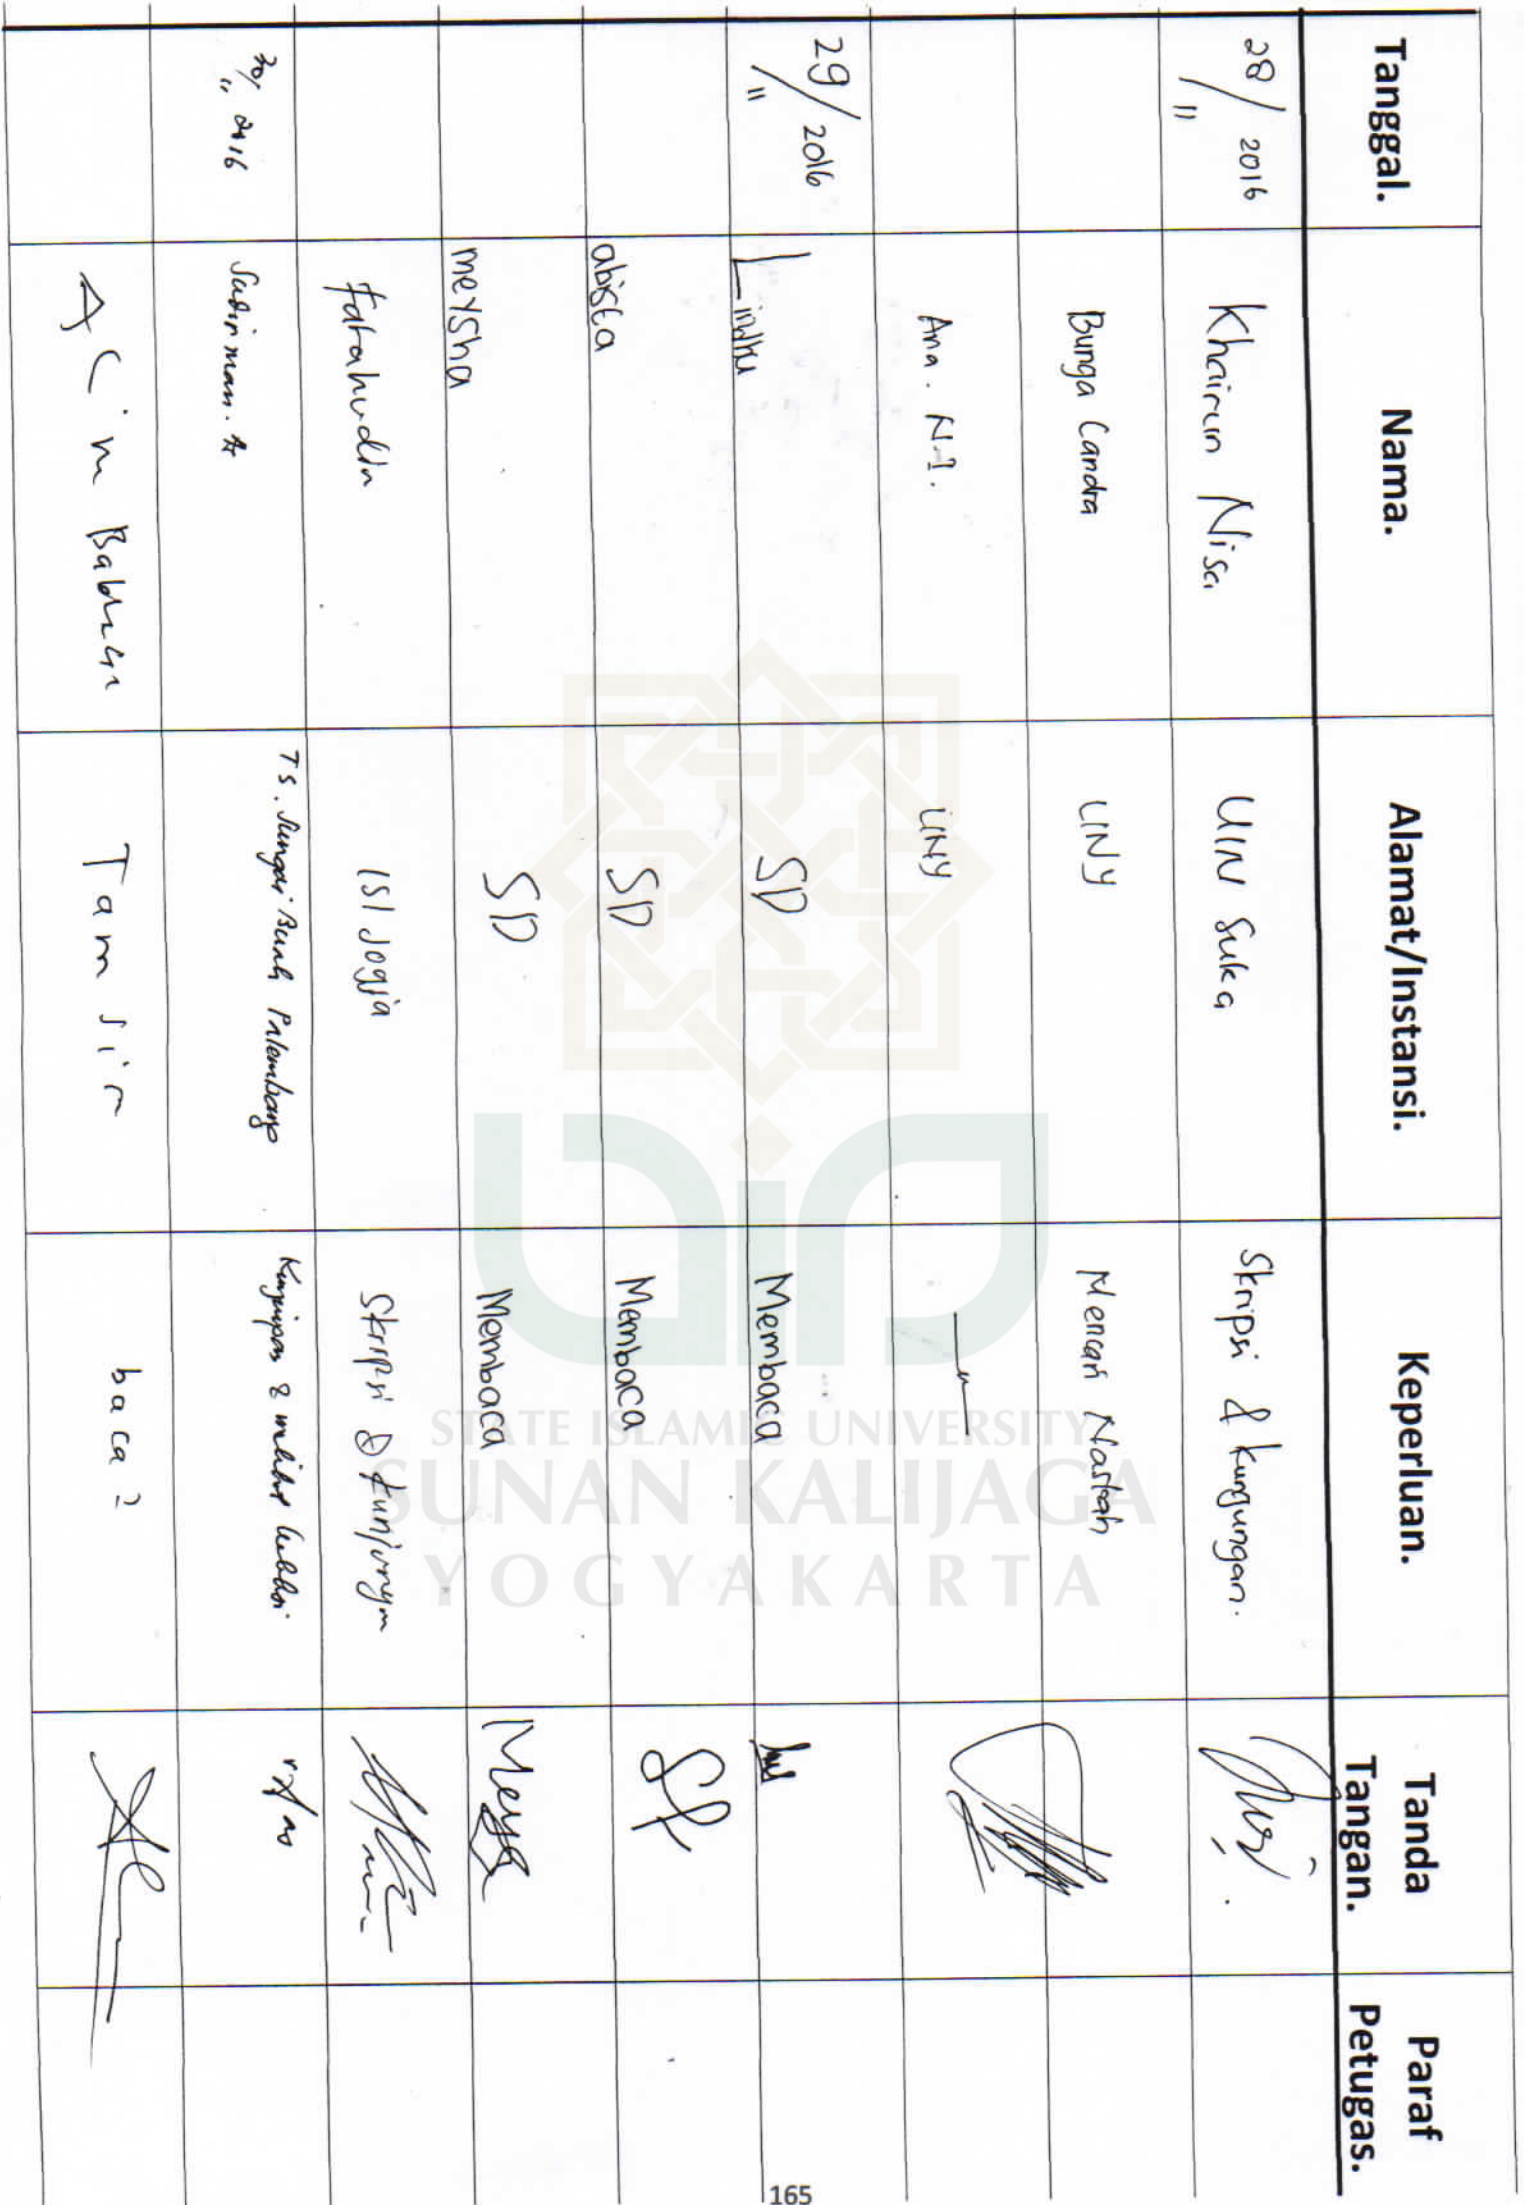 Tanggal. Nama. Alamat/Instansi. Keperluan. Tanda Tangan. Paraf Petugas.
28/11 2016 Khairun Nisa UIN Suka Skripsi & Kungungan.
Bunga Candra UNY Mencari Naskah
Ana. N.I. UNY — " —
29/11 2016 Lindhu SD Membaca
abista SD Membaca
meysha SD Membaca Meysa
Fatahuddin ISI Jogja Skripsi & kunjungan
30/11 2016 Sudirman. A Palembang
Acim Tamsir baca2
STATE ISLAMIC UNIVERSITY
SUNAN KALIJAGA
YOGYAKARTA
165